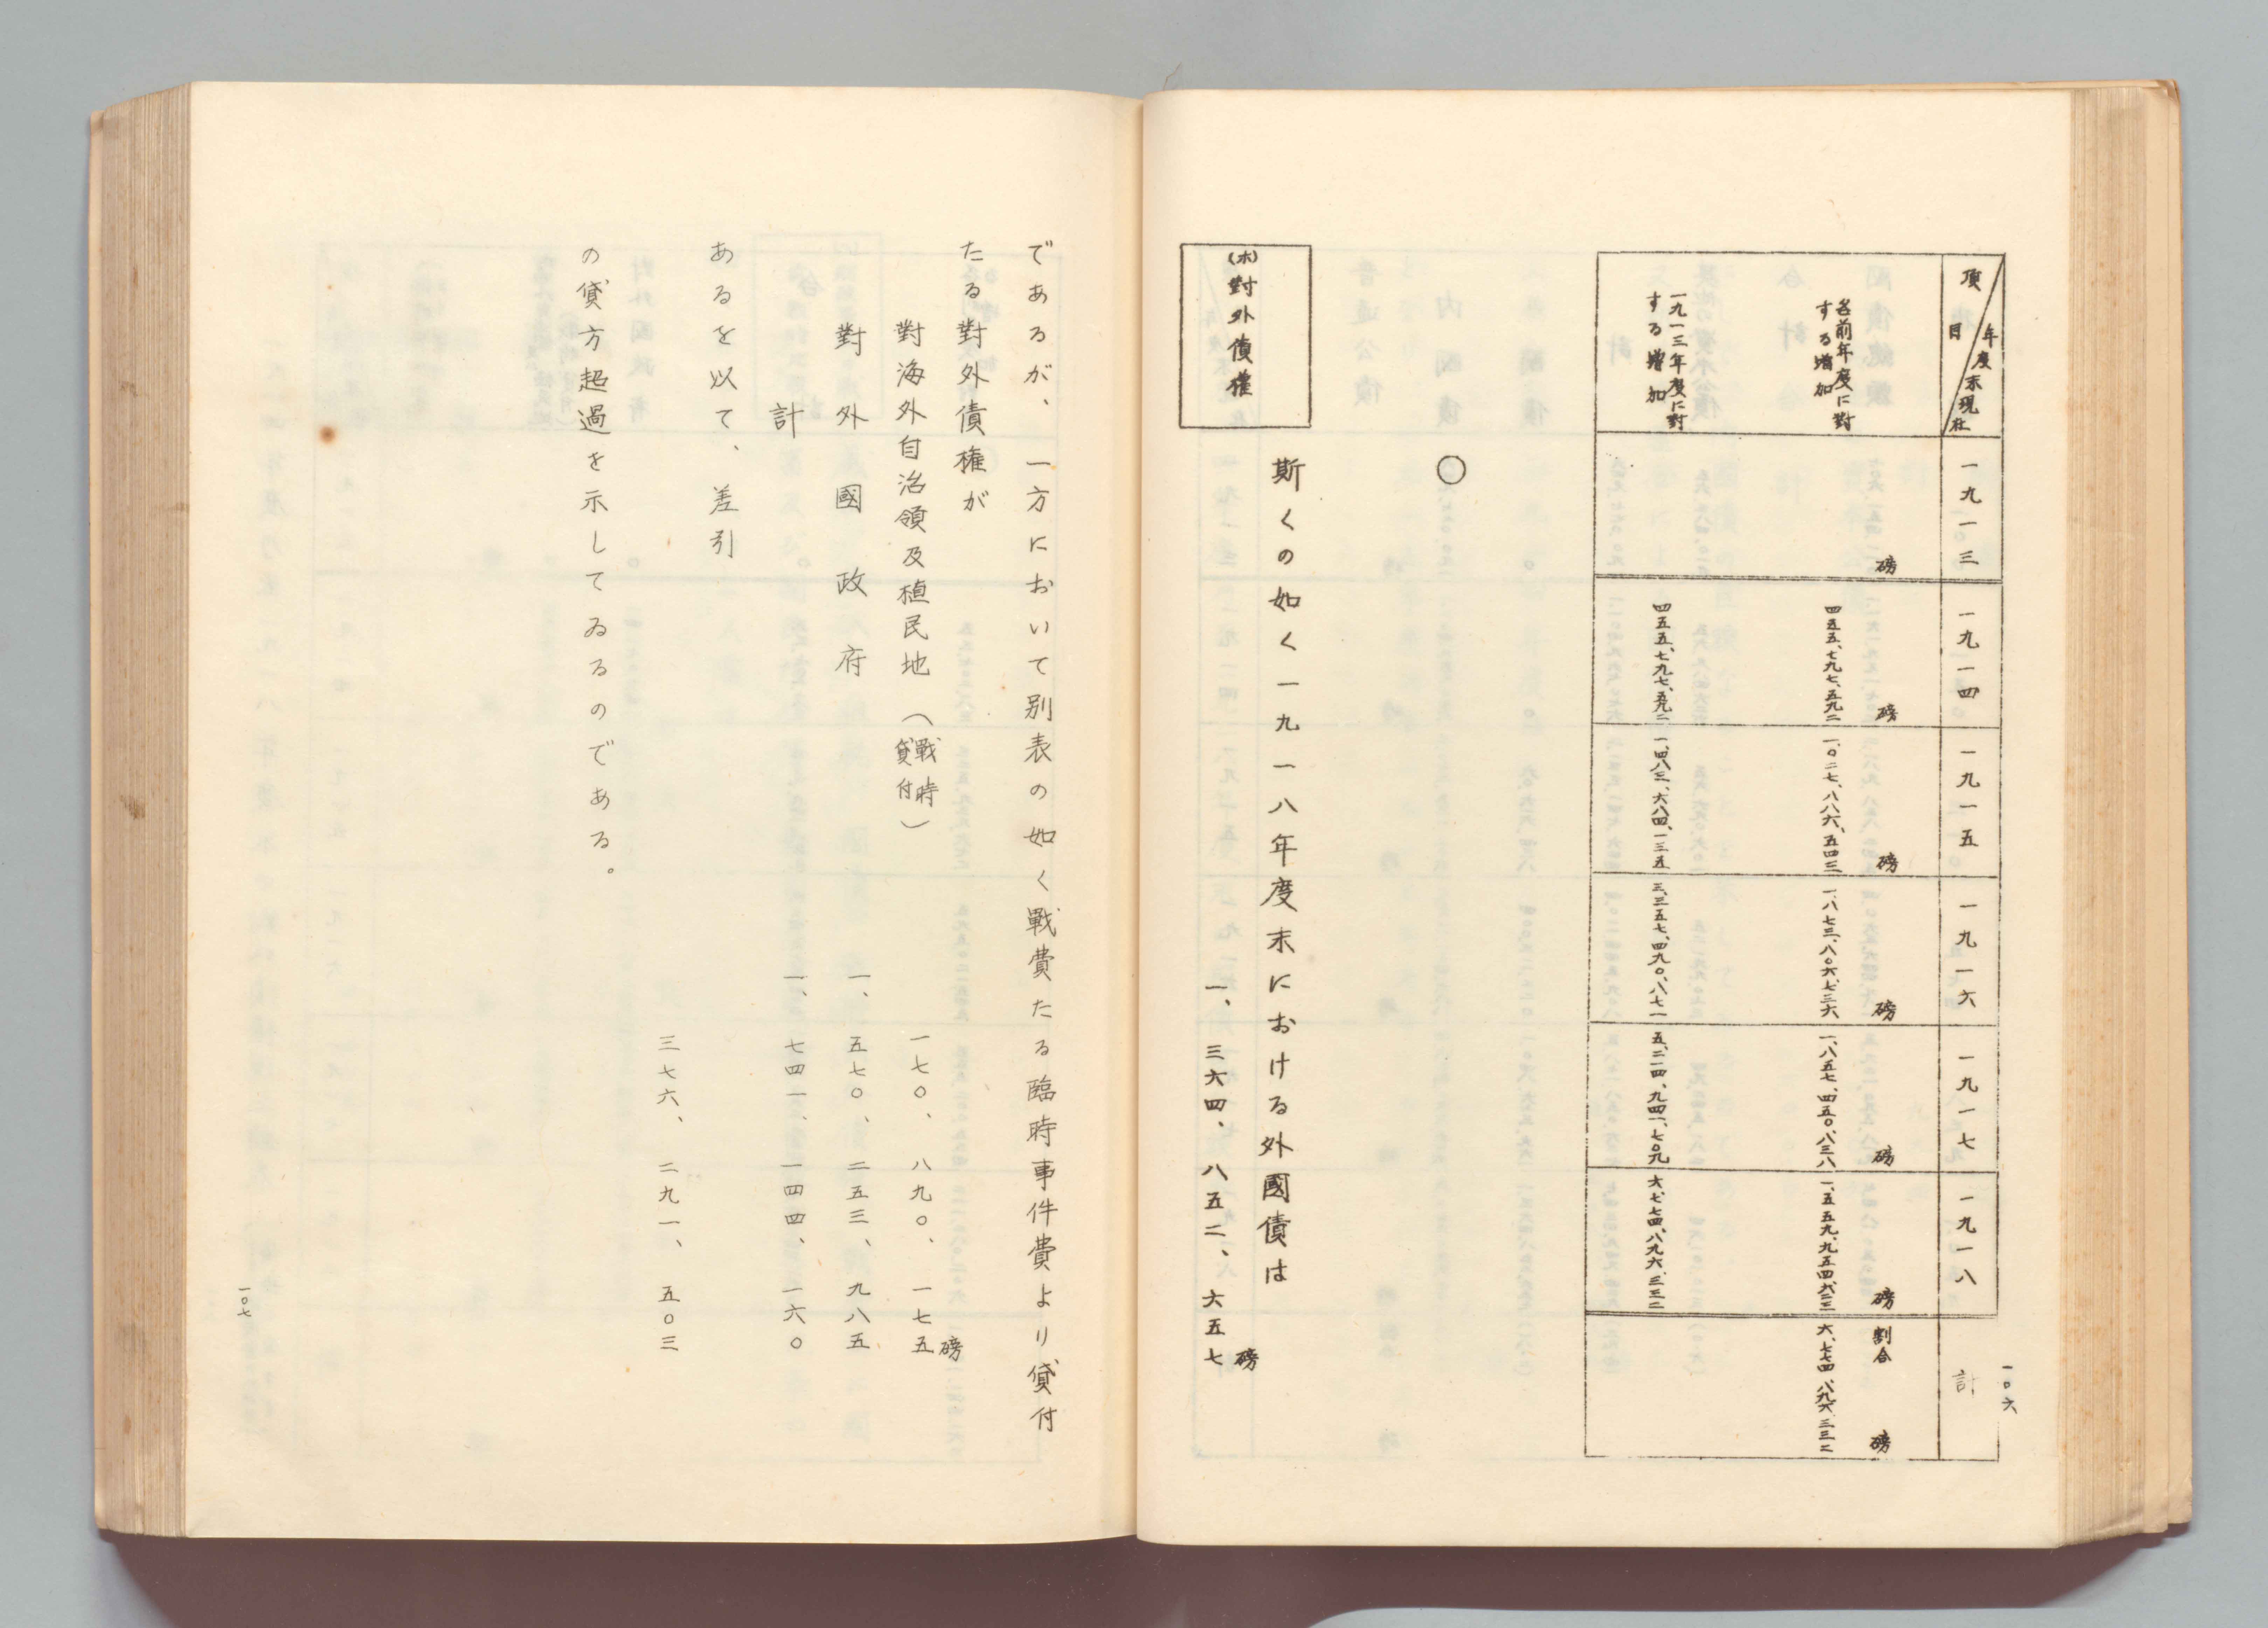 一〇六
項目 年度末現在
一九一三
一九一四
一九一五
一九一六
一九一七
一九一八
計
磅
磅
磅
磅
磅
磅
割合
磅
各前年度に對
する増加
四五五、七九七、五九二
一、〇二七、八八六、五四三
一、八七三、八〇六、七三六
一、八五七、四五〇、八三八
一、五五九、九五四、六二三
六、七七四、八九六、三三二
一九一三年度に對
する増加
四五五、七九七、五九二
一、四八三、六八四、一三五
三、三五七、四九〇、八七一
五、二一四、九四一、七〇九
六、七七四、八九六、三三二
〇
(ホ)對外債權
斯くの如く一九一八年度末における外國債は
一、三六四、八五二、六五七磅
であるが、一方において別表の如く戰費たる臨時事件費より貸付
たる對外債権が
對海外自治領及植民地（戰時貸付） 一七〇、八九〇、一七五磅
對外國政府 一、五七〇、二五三、九八五
計 一、七四一、一四四、一六〇
あるを以て、差引
三七六、二九一、五〇三
の貸方超過を示してゐるのである。
一〇七